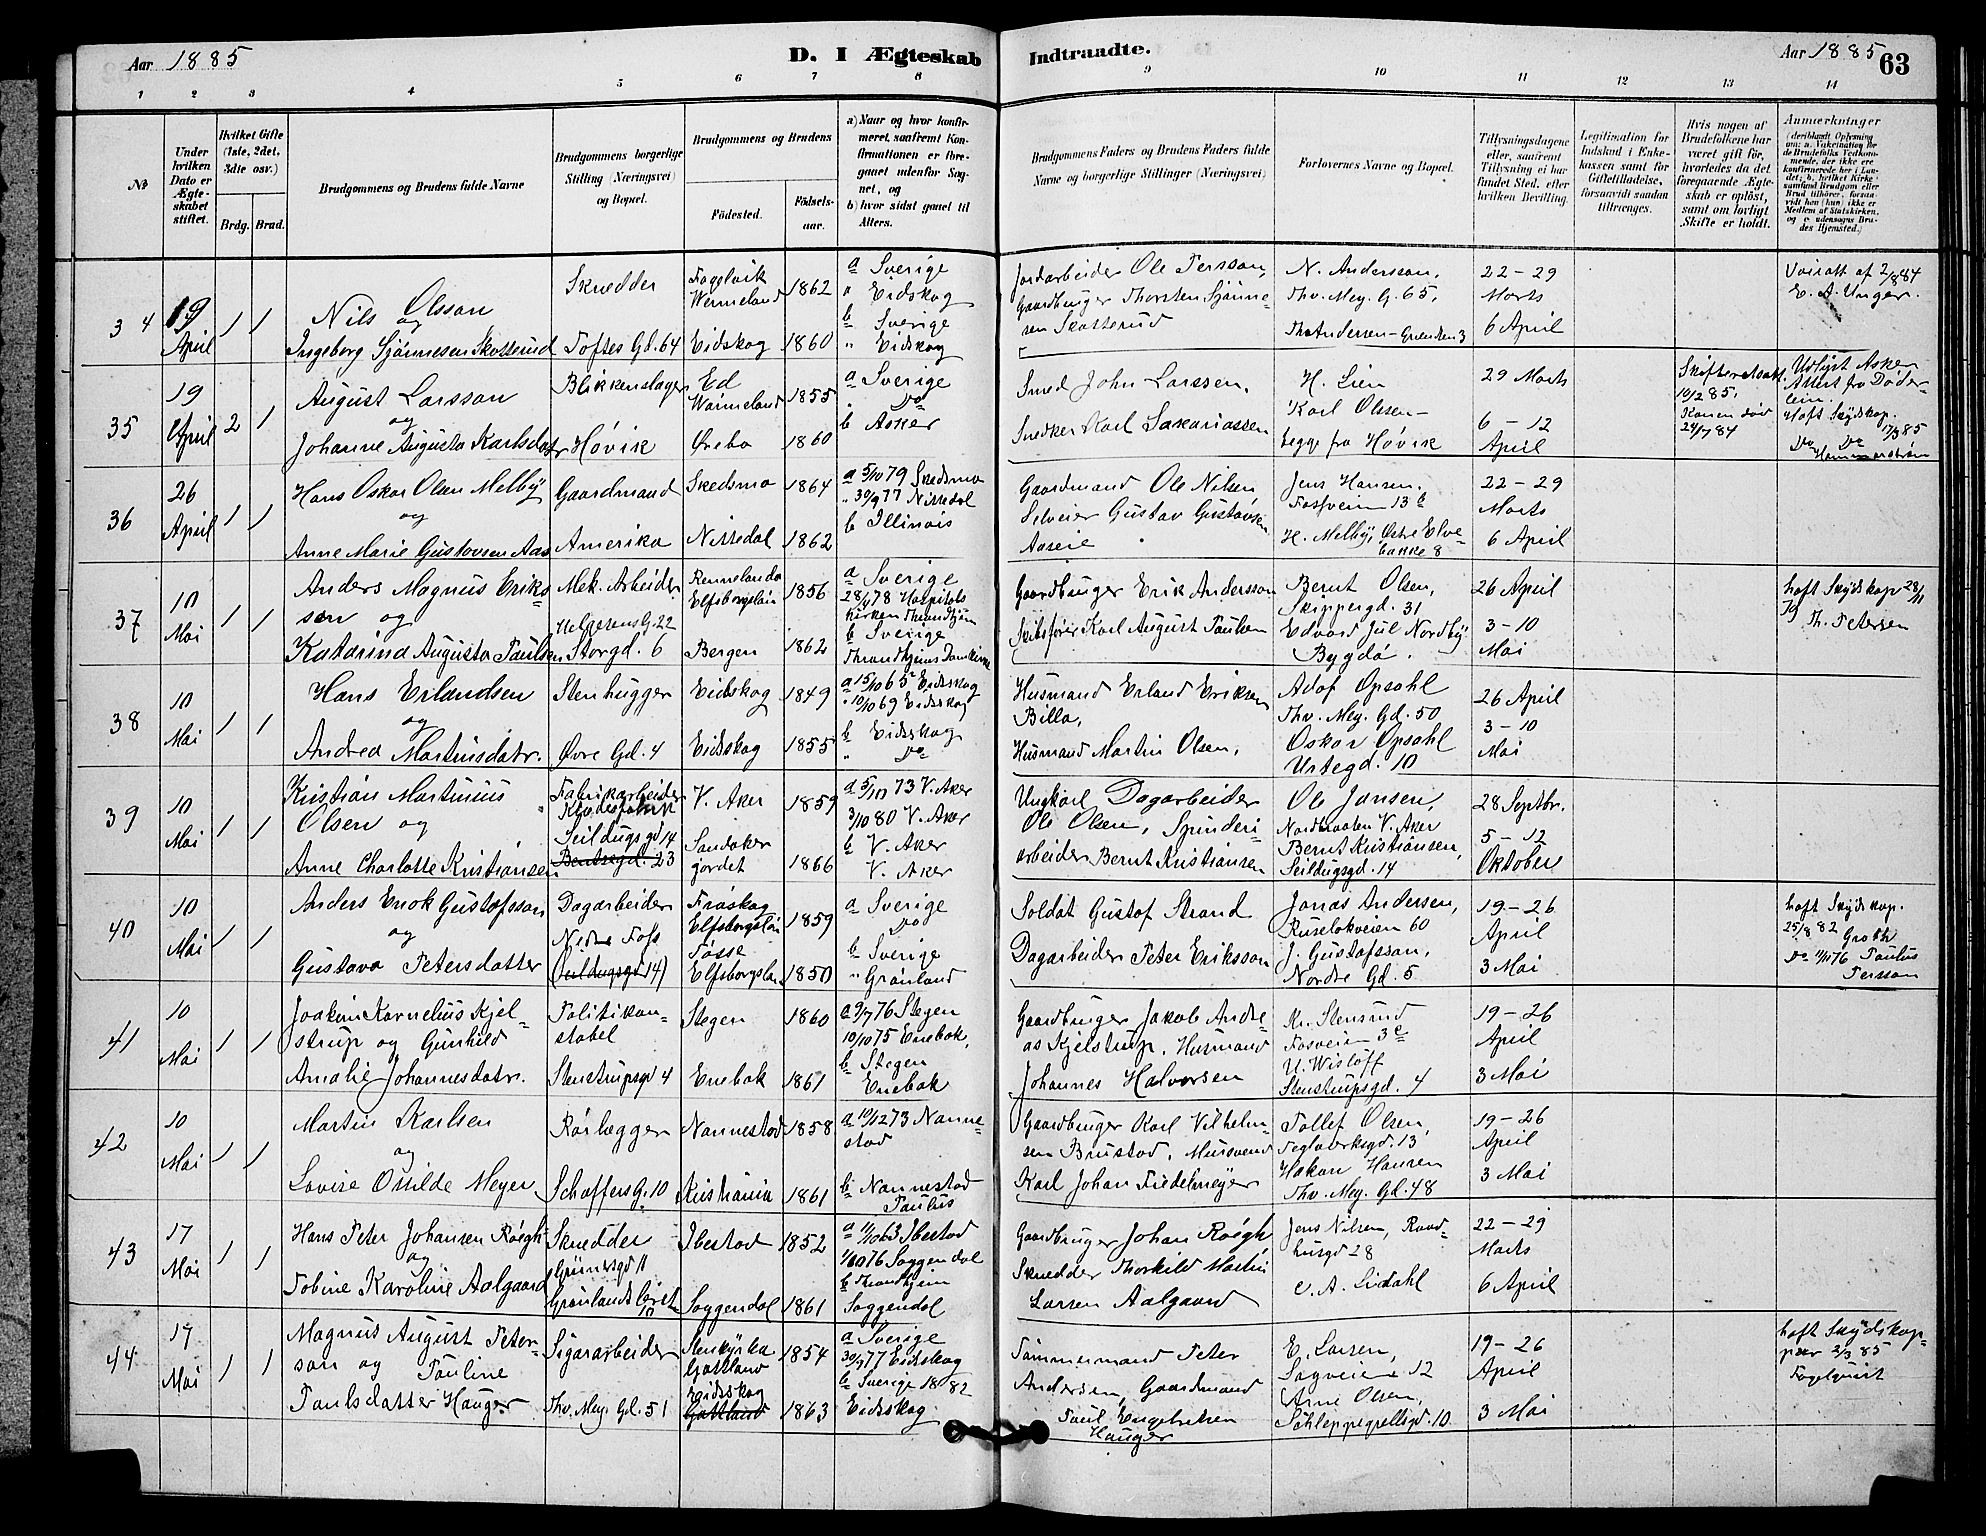 Aar 1885
D. I Ægteskab Indtraadte.
Aar 1885
63
1 2 3 4 5 6 7 8 9 10 11 12 13 14
№
Under hvilken Dato er Ægteskabet stiftet.
Hvilket Gifte (1ste, 2det, 3die osv.)
Brdg. Brud.
Brudgommens og Brudens fulde Navne
Brudgommens borgerlige Stilling (Næringsvei) og Bopæl.
Brudgommens og Brudens
Fødested.
Fødselsaar.
a) Naar og hvor konfirmeret, saafremt Konfirmationen er foregaaet udenfor Sognet, og
b) hvor sidst gaaet til Alters.
Brudgommens Faders og Brudens Faders fulde Navne og borgerlige Stillinger (Næringsvei)
Forlovernes Navne og Bopæl.
Tillysningsdagene eller, saafremt Tillysning ei har fundet Sted, efter hvilken Bevilling.
Legitimation for Indskud i Enkekassen samt for Giftetilladelse, forsaavidt saadan tiltrænges.
Hvis nogen af Brudefolkene har været gift, hvorledes da det foregaaende Ægteskab er opløst, samt om lovligt Skifte er holdt.
Anmærkninger
(deriblandt Oplysning om: a. Vakcination for de Brudefolks Vedkommende, der ikke ere konfirmerede her i Landet; b. hvilket Kirkesamfund Brudgom eller Brud tilhører, forsaavidt han (hun) ikke er Medlem af Statskirken, og c. udensogns Brudes Hjemsted.)
34
19 April
1 1
Nils Olsson
og
Ingeborg Sjønnesen Skotterud
Skrædder
Toftes Gd. 64
Fogelvik Wermeland 1862
Eidskog 1860
a Sverige
" Eidskog
b Sverige
" Eidskog
Jordarbeider Ole Persson,
Gaardbruger Thorsten Sjønnesen Skotterud
N. Andersson,
Thv. Mey. G. 65,
Th. Andersen – Grændsen 3
22 – 29 Marts
6 April
Vaisatt af 2/8 84
E. A. Unger.
35
19 April
2 1
August Larsson
og
Johanne Augusta Karlsdatter
Blikkenslager
Høvik
Ed Wärmeland 1855
Ørebo 1860
a Sverige
" Do
b Asker
Smed John Larssen,
Snedker Karl Sakariassen
H. Lien
Karl Olsen –
begge fra Høvik
29 Marts
6 – 12 April
Skifteretsatt.
10/2 85,
Konen død
24/7 84
Udlyst Asker
Attest fra Døderlein.
Haft Skydskop.
17/3 85
Do Do
36
26 April
1 1
Hans Oskar Olsen Melby
og
Anne Marie Gustavsen Aas
Gaardmand
Amerika
Skedsmo 1864
Nittedal 1862
a 5/10 79 Skedsmo
" 30/9 77 Nittedal
b Illinois
Gaardmand Ole Nilsen
Selveier Gustav Gustavsen
Aaseie
Jens Hansen,
Fosfveien 13 b
H. Melby, Østre Elvebakke 8
22 – 29 Marts
6 April
37
10 Mai
1 1
Anders Magnus Eriksson og
Katarina Augusta Paulsen
Mek. Arbeider
Helgesens G. 22
Storgd. 6
Rennelanda Elfsborgslän 1856
Bergen 1862
a Sverige
28/4 78 Hospitalskirken Throndhjem
b Sverige
Throndhjems Domkirke
Gaardbruger Erik Andersson
Skibsfører Karl August Paulsen
Bernt Olsen,
Skippergd. 31
Edvard Jul Nordby
Bygdø.
26 April
3 – 10 Mai
haft Skydskop 28/11
79 Th. Petersen
38
10 Mai
1 1
Hans Erlandsen
og
Andrea Martinsdatr.
Stenhugger
Øvre Gd. 4
Eidskog 1849
Eidskog 1855
a 15/10 65 Eidskog
" 10/10 69 Eidskog
b Eidskog
" Do
Husmand Erland Eriksen
Billa,
Husmand Martin Olsen,
Adof Opsahl
Thv. Mey. Gd. 50
Oskar Opsahl
Urtegd. 10
26 April
3 – 10 Mai
39
10 Mai
1 1
Kristian Martinius
Olsen og
Anne Charlotte Kristiansen
Fabrikarbeider
Klædesfabrik
Seildugsgd 14
Bentsegd. 23
V. Aker 1859
Sandaker jordet 1866
a 5/10 73 V. Aker
3/10 80 V. Aker
b V. Aker
V. Aker
Ungkarl Dagarbeider
Ole Olsen, Spinderiarbeider Bernt Kristiansen
Ole Jansen,
Nordbraaten V. Aker
Bernt Kristiansen,
Seildugsgd. 14
28 Septbr.
5 – 12 Oktober
40
10 Mai
1 1
Anders Enok Gustafsson
og
Gustava Petersdatter
Dagarbeider
Nedre Foss
(Seildugsgd 14)
Fröskog Elfsborgslän 1859
Tösse Elfsborgslän 1850
a Sverige
Do
b Sverige
" Grønland
Soldat Gustof Strand
Dagarbeider Peter Eriksson
Jonas Andersen,
Ruseløkveien 60
J. Gustafsson,
Nordre Gd. 5
19 – 26 April
3 Mai
haft Skydskop.
25/8 82 Groth
Do 11/11 76 Paulus
Persson
41
10 Mai
1 1
Joakim Kornelius Kjelstrup og Gunhild
Amalie Johannesdatr.
Politikonstabel
Stenstrupsgd 4
Stegen 1860
Enebak 1861
a 9/7 76 Stegen
10/10 75 Enebak,
b Stegen
Enebak
Gaardbruger Jakob Andreas Kjelstrup, Husmand
Johannes Halvorsen
Kr. Stensrud
Fosveien 3 c
U. Wisløff
Stenstrupsgd. 4
19 – 26 April
3 Mai
42
10 Mai
1 1
Martin Karlsen
og
Lovise Otilde Meyer
Rørlægger
Schøffers G. 10
Nannestad 1858
Kristiania 1861
a 10/12 73 Nannestad
b Nannestad
Paulus
Gaardbruger Karl Vilhelmsen Brustad, Mursvend
Karl Johan Fredrik Meyer
Tollef Olsen,
Teglverksgd. 13
Hakon Hansen
Thv. Mey. Gd. 48
19 – 26 April
3 Mai
43
17 Mai
1 1
Hans Peter Johansen Røegh
og
Tobine Karoline Aalgaard
Skrædder
Grünersgd 11
Grønlands Leret 10
Ibestad 1852
Soggendal 1861
a 1/10 63 Ibestad
1/10 76 Soggendal
b Throndhjem
Soggendal
Gaardbruger Johan Røegh
Skrædder Thorkild Martin
Larsen Aalgaard
Jens Nilsen, Raadhusgd 28
C. A. Lidahl
22 – 29 Marts
6 April
44
17 Mai
1 1
Magnus August Peterson og Pauline
Paulsdatter Hauger
Sigararbeider
Thv. Mey. Gd. 51
Stenkyrka Gottland 1854
Eidskog
Gottland 1863
a Sverige
30/9 77 Eidskog
b Sverige 1882
Eidskog
Tømmermand Peter
Andersen, Gaardmand
Paul Engebretsen
Hauger
E. Larsen,
Sagveien 12
Arne Olsen,
Schleppegrellsgd. 10
19 – 26 April
3 Mai
haft Skydskopper 2/3 85
Fogelquist